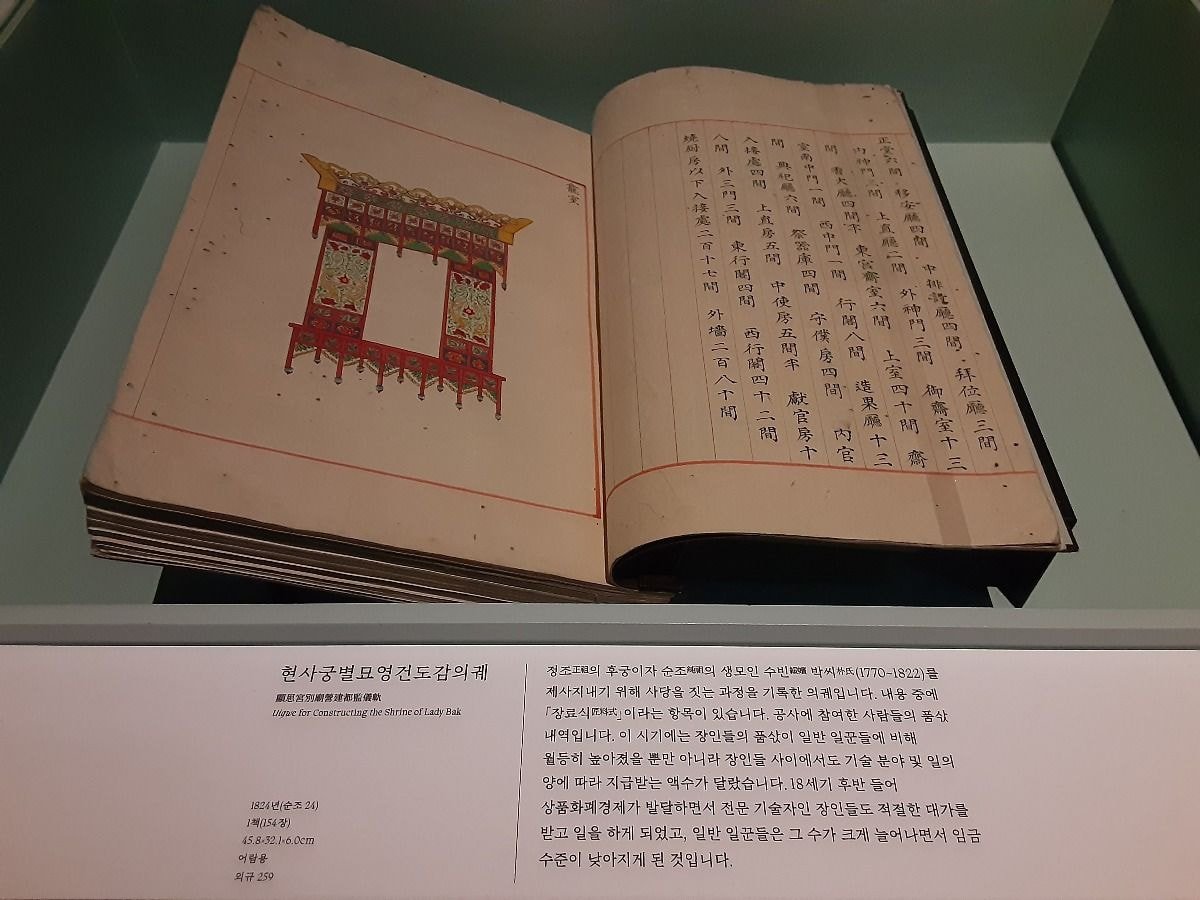 龕室
正堂六間 移安廳四間 中排設廳四間 拜位廳三間
內神門三間 上直廳二間 外神門三間 御齋室十三
間 香大廳四間半 東宮齋室六間 上室四十間 齋
室南中門一間 西中門一間 行閣八間 造果廳十二
間 典祀廳六間 祭器庫四間 守僕房四間 內官
入接處四間 上直房五間 中使房五間半 獻官房十
八間 外三門三間 東行閣四間 西行閣四十二間
燒厨房以下入接處二百十七間 外墻二百八十間
현사궁별묘영건도감의궤
顯思宮別廟營建都監儀軌
Uigwe for Constructing the Shrine of Lady Bak
1824년(순조 24)
1책(154장)
45.8×32.1×6.0cm
어람용
외규 259
정조正祖의 후궁이자 순조純祖의 생모인 수빈綏嬪 박씨朴氏(1770~1822)를
제사지내기 위해 사당을 짓는 과정을 기록한 의궤입니다. 내용 중에
「장료식匠料式」이라는 항목이 있습니다. 공사에 참여한 사람들의 품삯
내역입니다. 이 시기에는 장인들의 품삯이 일반 일꾼들에 비해
월등히 높아졌을 뿐만 아니라 장인들 사이에서도 기술 분야 및 일의
양에 따라 지급받는 액수가 달랐습니다. 18세기 후반 들어
상품화폐경제가 발달하면서 전문 기술자인 장인들도 적절한 대가를
받고 일을 하게 되었고, 일반 일꾼들은 그 수가 크게 늘어나면서 임금
수준이 낮아지게 된 것입니다.